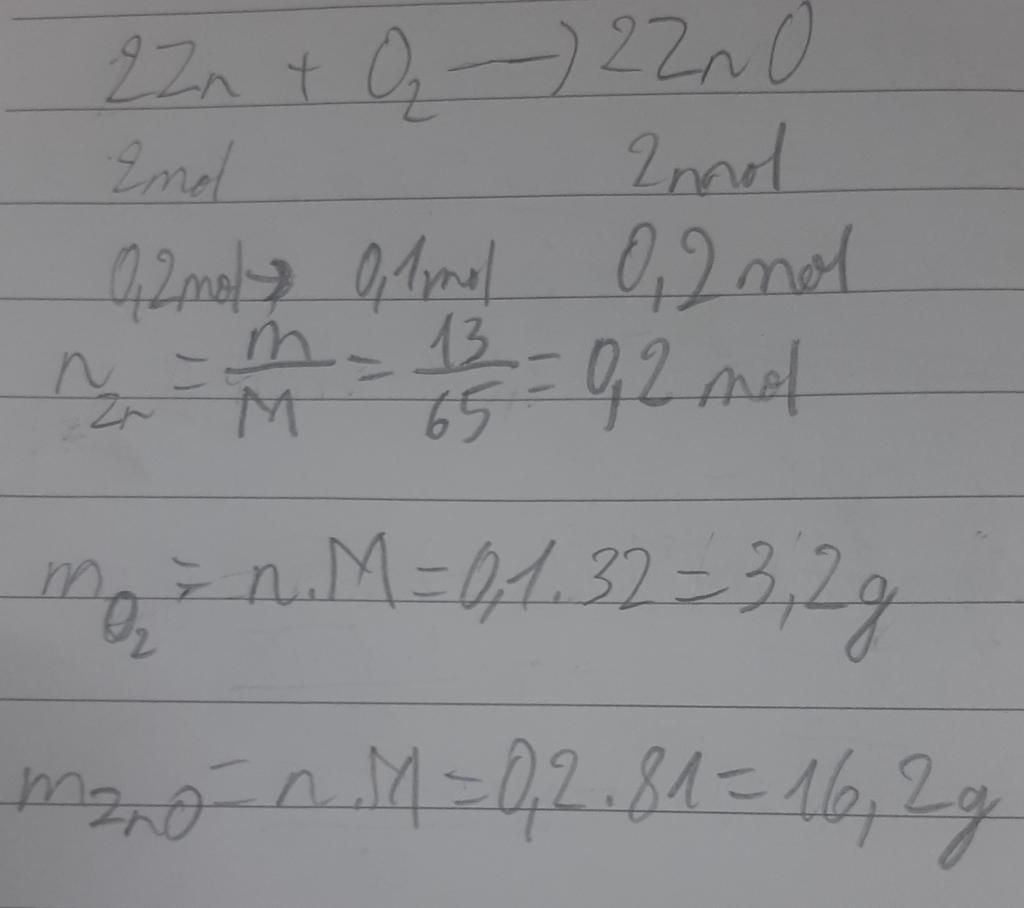 2Zn + O₂ → 2ZnO
2mol 2mol
0,2mol → 0,1mol 0,2mol
n_Zn = m/M = 13/65 = 0,2 mol
m_O₂ = n.M = 0,1.32 = 3,2g
m_ZnO = n.M = 0,2.81 = 16,2g